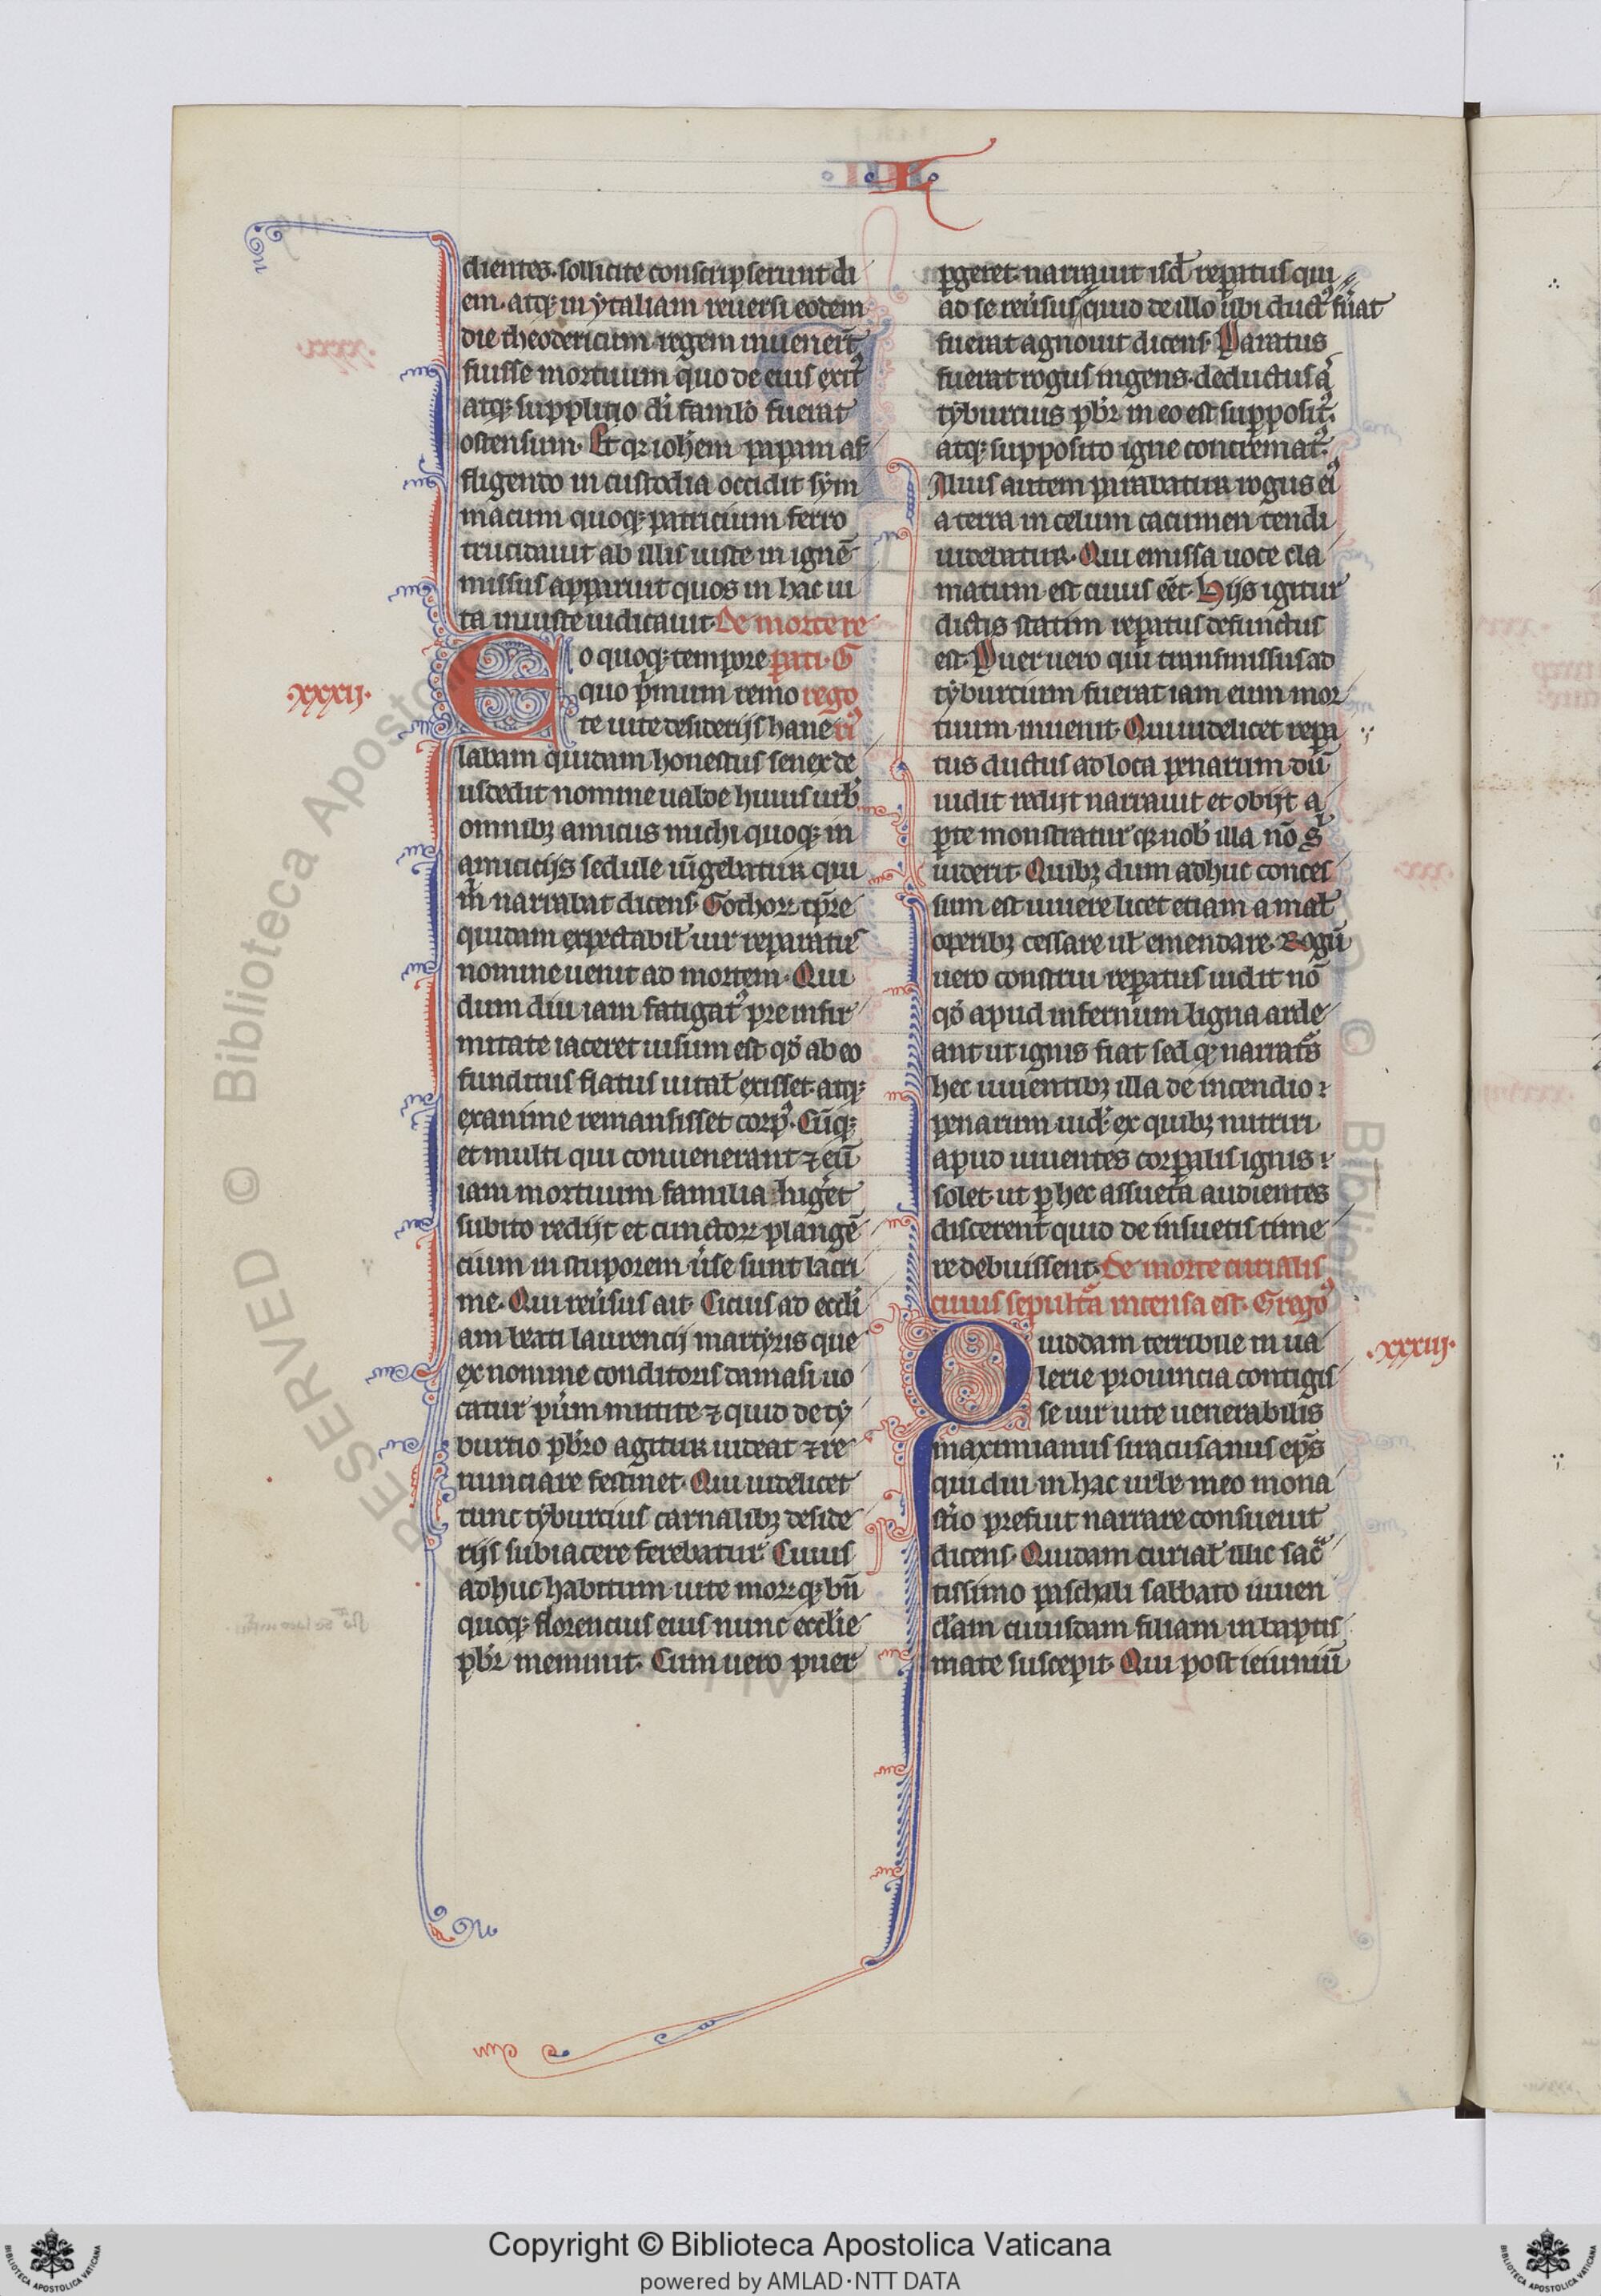 L
dientes. sollicite conscripserunt di
em. atq; in ytaliam reuersi eodem
die theodericum regem inuenert̄
fuisse mortuum quo de eius exit᾽
atq; supplitio di famlo fuerat
ostensum. Et qr ioh̄em papam af
fligendo in custodia occidit sym
macum quoq; patricium ferro
trucidauit ab illis iuste in ignē
missus apparuit quos in hac ui
ta iniuste iudicauit. De morte re
o quoq; tempore pati. G
quo p̄mum remo rego
te uite desiderijs hane ri᾽
xxxij.
labam quidam honestus senex de
usdedit nomine ualde huius urb̄
omnibz amicus michi quoq; in
amicicijs sedule iūgebatur qui
m̄ narrabat dicens. Gothorꝝ tp̄re
quidam expectabil᾽ uir reparatus
nomine uenit ad mortem. Qui
dum diu iam fatigat᾽ pre infir
mitate iaceret uisum est qđ ab eo
funditus flatus uital᾽ exisset. atq;
exanime remansisset corp᾽. Cūq;
et multi qui conuenerant ⁊ eū
iam mortuum familia lugēt
subito redijt et cunctorꝝ plangē
cium in stuporem ūse sunt lacri
me. Qui reūsus ait. Cicius ad eccli
am beati laurencij martyris que
ex nomine conditoris damasi uo
catur pūm mittite ⁊ quid de ty
burtio pb̄ro agitur uideat ⁊ re
nunciare festinet. Qui uidelicet
tunc tyburcius carnalibz deside
rijs subiacere ferebatur. Cuius
adhuc habitum uite morꝝ q; bn̄
quoq; florencius eius nunc ecclie
pb̄r meminit. Cum uero puer
ꝑgeret. narrauit isd̄ repatus qui
ad se reūsus quid de illo ubi duct᾽ fūat
fuerat agnouit dicens. Paratus
fuerat rogus ingens. deductus q̇
tyburcius pb̄r in eo est supposit᾽.
atq; supposito igne concremat᾽.
Alius autem parabatur rogus c᾽
a terra in celum cacumen tendi
uidebatur. Qui emissa uoce cla
matum est cuius eēt. Hijs igitur
dictis statim reꝑatus defunctus
est. Puer uero qui transmissus ad
tyburtium fuerat iam eum mor
tuum inuenit. Qui uidelicet reꝑa
tus ductus ad loca penarum dū
uidit redijt narrauit et obijt a
ꝑte monstratur q; nob̄ illa nō s᷑
uiderit. Quibz dum adhuc conces
sum est uiuere licet etiam a mal᾽
operibz cessare ul᾽ emendare. Rogū
uero construi reꝑatus uidit nō
qđ apud infernum ligna arde
ant ut ignis fiat sed q; narrat᾽s
hec uiuentibz illa de incendio
penarum uid᾽. ex quibz nutriri
apud uiuentes corꝑalis ignis
solet. ut ꝑ hec assueta audientes
discerent quid de insuetis time
re debuissent. De morte curialis
cuius sepult᷑a incensa est. Grego᾽
xxxiij.
uiddam terribile in ua
lerie prouincia contigis
se uir uite uenerabilis
maximianus siracusanus ep̄s
qui diu in hac urbe meo mona
str̄io prefuit narrare consueuit
dicens. Quidam curial᾽ illic sac᷑
tissimo paschali sabbato iuuen
clam cuiusdam filiam in baptis
mate suscepit. Qui post ieiuniū
Copyright © Biblioteca Apostolica Vaticana
powered by AMLAD·NTT DATA